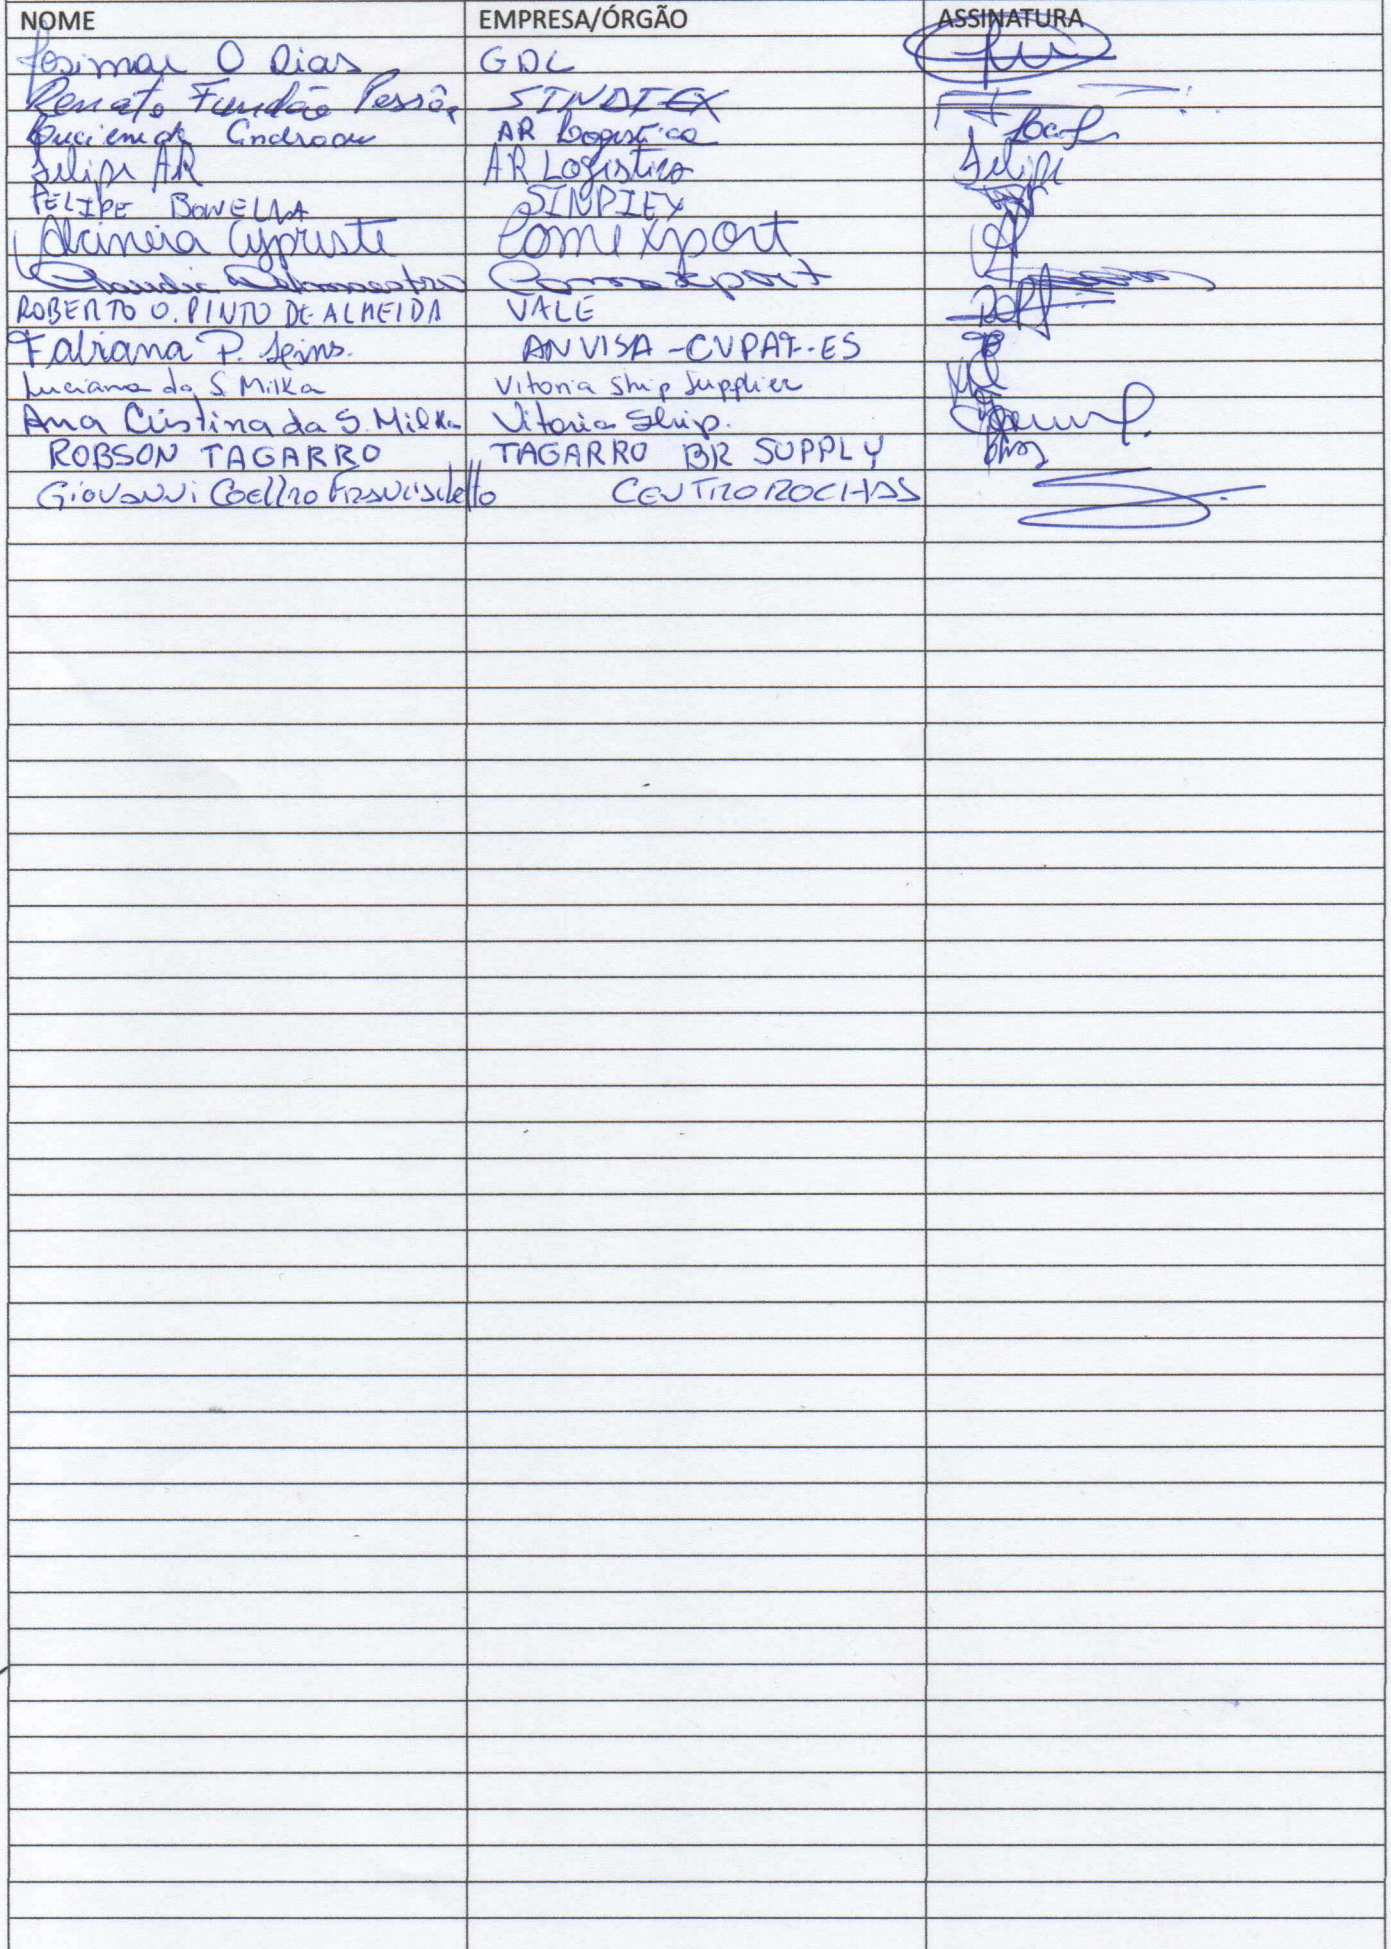 NOME EMPRESA/ÓRGÃO ASSINATURA
Josimar O Dias GDL
Renato Fundão Pessôa SINDIEX
Luciemar Andrade AR Logística
Felipe AR AR Logistica Felipe
FELIPE BONELLA SINDIEX
Alcineia Cypriste Comexport
Claudia Comexport
ROBERTO O. PINTO DE ALMEIDA VALE
Fabiana P. Leins. ANVISA-CVPAF-ES
Luciana da S. Milka Vitoria Ship Supplier
Ana Cristina da S. Milka Vitoria Ship.
ROBSON TAGARRO TAGARRO BR SUPPLY
Giovanni Coelho Francischetto CENTROROCHAS